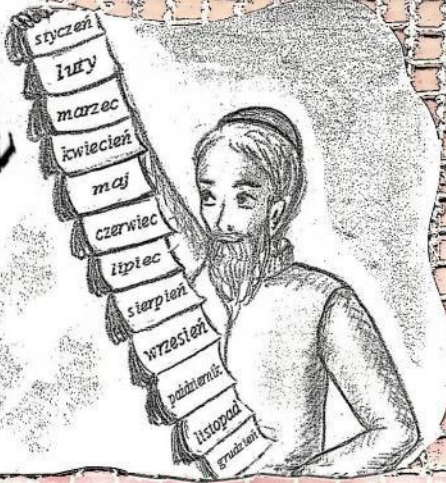 styczeń
luty
marzec
kwiecień
maj
czerwiec
lipiec
sierpień
wrzesień
październik
listopad
grudzień